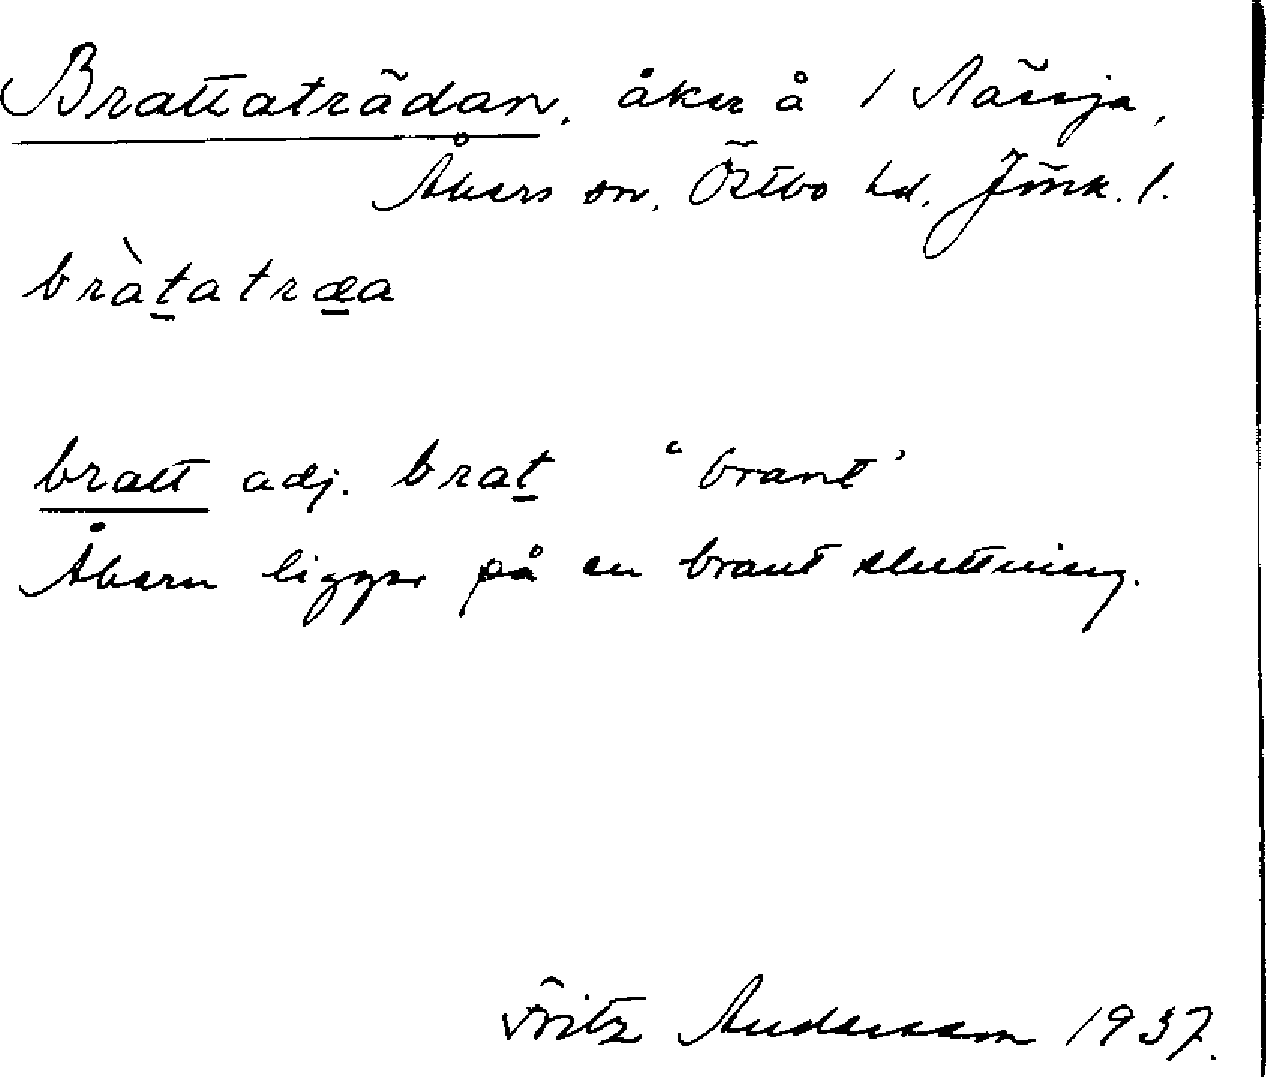 Brattaträdan, åker å 1 Nässja,
Åkers sn. Östbo hd. Jönk. l.
bràtatræa
bratt adj. brat "brant'
Åkern ligger på en brant sluttning.
Fritz Andersson 1937.